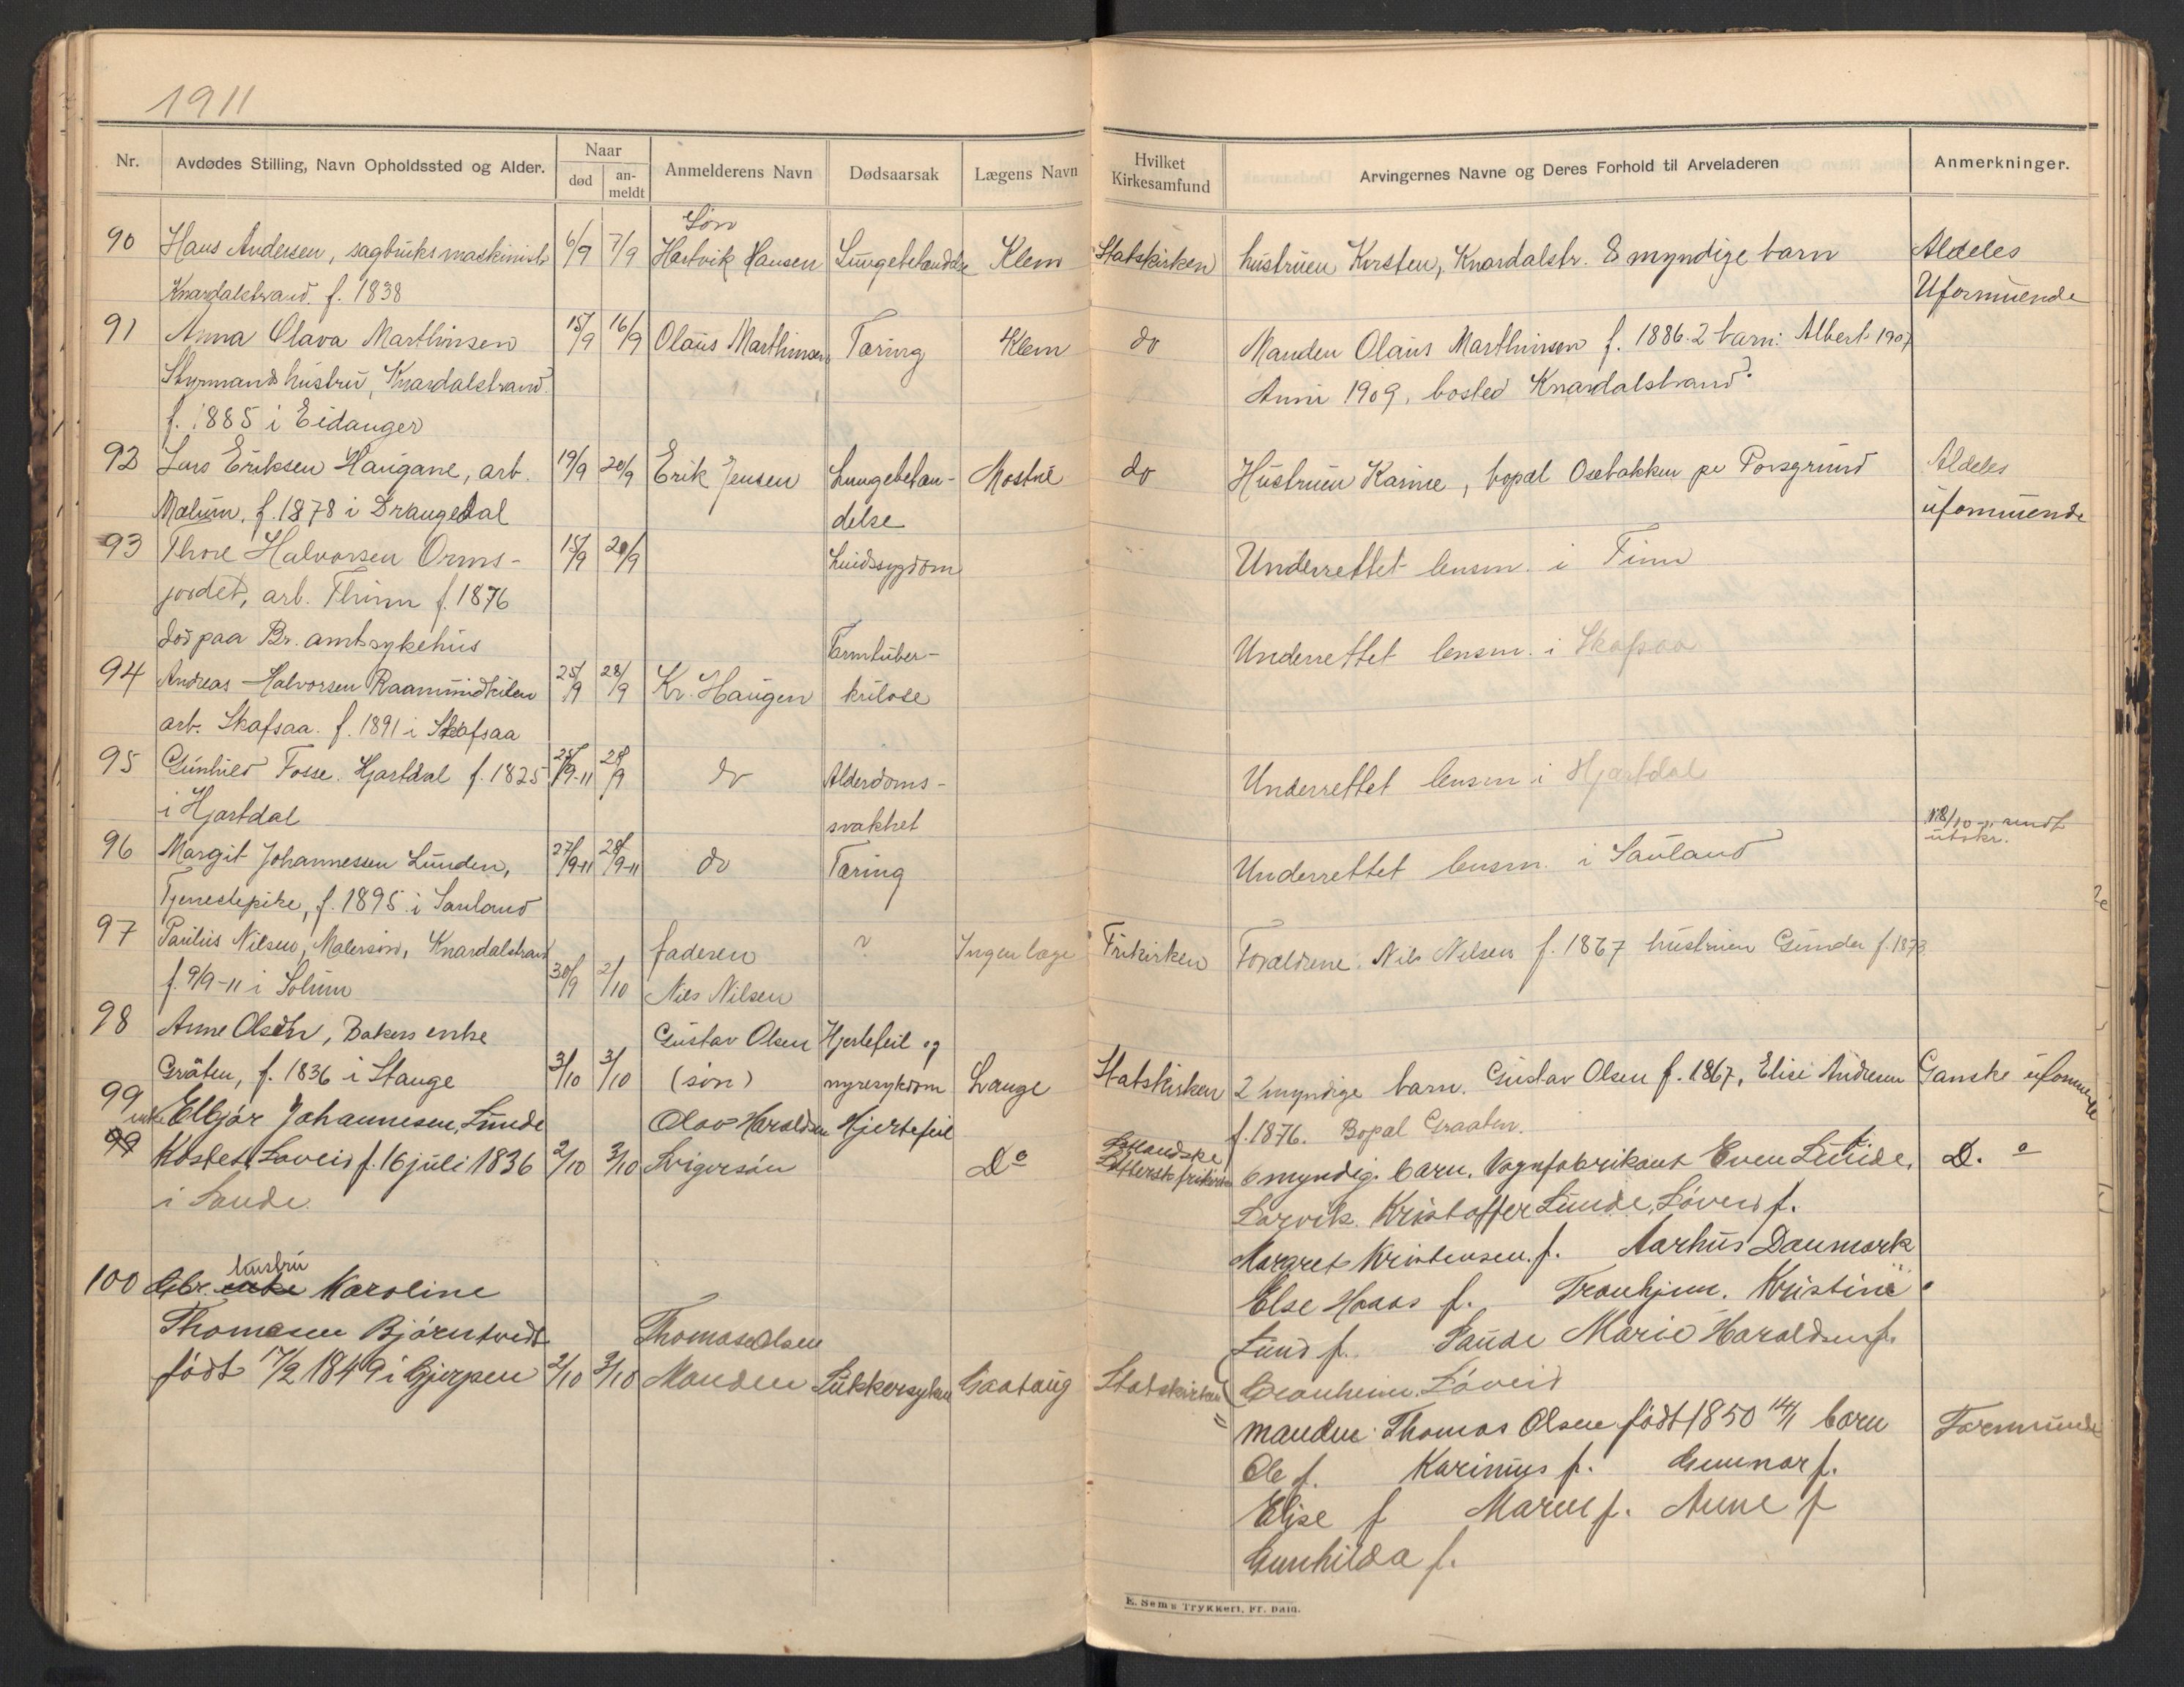 1911
Nr.
Avdødes Stilling, Navn Opholdssted og Alder.
Naar
død
an-
meldt
Anmelderens Navn
Dødsaarsak
Lægens Navn
Hvilket
Kirkesamfund
Arvingernes Navne og Deres Forhold til Arveladeren
Anmerkninger.
Søn
90 Hans Andersen, sagbruksmaskinist 6/9 7/9 Hartvik Hansen Lungebetændelse Klem Statskirken hustruen Kirsten, Knardalstr. 8 myndige barn Aldeles
Knardalstrand. f. 1838 Uformuende
91 Anna Olava Marthinsen 15/9 16/9 Olaus Marthinsen Tæring Klem do Manden Olaus Marthinsen f. 1886. 2 barn: Albert 1907
Styrmands hustru, Knardalstrand. Anni 1909, bosted Knardalstrand.
f. 1885 i Eidanger
92 Lars Eriksen Haugane, arb. 19/9 20/9 Erik Jensen Lungebetæn- Mostue do Hustruen Karine, bopæl Osebakken pr Porsgrund Aldeles
Mælum, f. 1878 i Drangedal delse uformuende
93 Thore Halvorsen Orms- 15/9 20/9 Hudssygdom Underrettet lensm. i Tinn
jordet, arb. Thinn f. 1876
død paa Br. amtssykehus Tarmtuber- Underrettet lensm. i Skafsaa
94 Andreas Halvorsen Raamundkilen 25/9 28/9 Kr. Haugen kulose
arb. Skafsaa. f. 1891 i Skafsaa
95 Gunhild Fosse. Hjartdal f. 1825 25/9-11 28/9 do Alderdoms- Underrettet lensm i Hjartdal
i Hjartdal svakhet
18/10-11 sendt
utskr.
96 Margit Johannessen Lunden, 27/9-11 28/9-11 do Tæring Underrettet lensm. i Sauland
Tjenestepike, f. 1895 i Sauland
97 Paulus Nilsen, Malersøn, Knardalstrand faderen ? Ingen læge Frikirken Forældrene. Nils Nilsen f. 1867 hustruen Gunda f. 1873
f. 9/9-11 i Solum 30/9 2/10 Nils Nilsen
98 Anne Olsen, Bakers enke Gustav Olsen Hjertefeil og
Gråten, f. 1836 i Stange 3/10 3/10 (søn) nyresykdom Lange Statskirken 2 myndige barn. Gustav Olsen f. 1867, Elise Andresen Ganske uformuende
f. 1876. Bopæl Graaten.
99 enke Elbjør Johannesen, Lunde Olav Haraldsen Hjertefeil
99 Kostet, Løveid f. 16 juli 1836 2/10 3/10 Svigersøn Do frikirke 6 myndig. barn. Vognfabrikant Even Lunde, D. o
i Sande. Larvik. Kristoffer Lunde, Løveid f.
Margret Kristensen. f. Aarhus Danmark
Else Haaas f. Tronhjem. Kristine
Lund f. Sande Marie Haraldsen f.
Løveid
100 Gbr. hustru enke Karoline
Thomesen Bjørntvedt Thomas Olsen
født 17/2 1849 i Gjerpen 2/10 3/10 Manden Sukkersyken Gaataug Statskirken
manden: Thomas Olsen født 1850 14/1 barn Formuende
Ole f. Karinius f. Gunnar f.
Elise f Maren f. Anne f
Gunhilda f.
E. Sem's Trykkeri, Fr. hald.